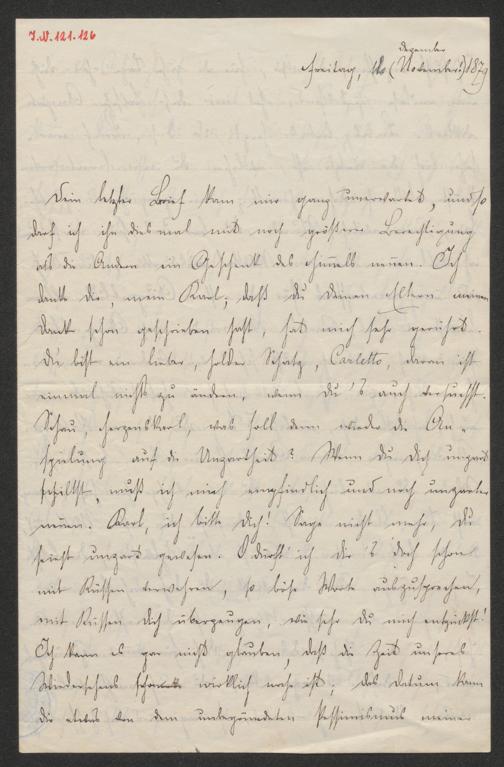 I.N. 121.126
Dezember
Freitag, (November!) 1879
Dein letzter Brief kam mir ganz unerwartet, und so
darf ich ihn diesmal mit noch größerer Berechtigung
als die Andern ein Geschenk des Himmels nennen. Ich
danke Dir, mein Karl, daß Du Deinen Eltern meinen
Dank schon geschrieben hast, hat mich sehr gerührt.
Du bist ein lieber, holder Schatz, Carletto, daran ist
einmal nichts zu ändern, wenn Du's auch versuchst.
Schau, Herzenskarl, was soll denn wieder die An-
spielung auf die Unzartheit? Wenn Du Dich unzart
schiltst, muß ich mich empfindlich und noch unzarter
nennen. Karl, ich bitte Dich! Sage nicht mehr, Du
seiest unzart gewesen. O dürft' ich Dir's doch schon
mit Küssen verwehren, so böse Worte auszusprechen,
mit Küssen Dich überzeugen, wie sehr Du mich entzückst!
Ich kann es gar nicht glauben, daß die Zeit unseres
Wiedersehens wirklich nahe ist; das Datum kann
Dir etwas von dem unbegründeten Pessimismus meiner